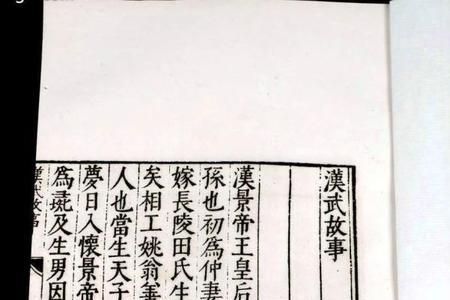 漢武故事
漢景帝王皇后
孫也初爲仲妻
嫁長陵田氏生
矣相工姚翁善
人也當生天子
夢日入懷景帝
爲彘及生男因
漢武故事